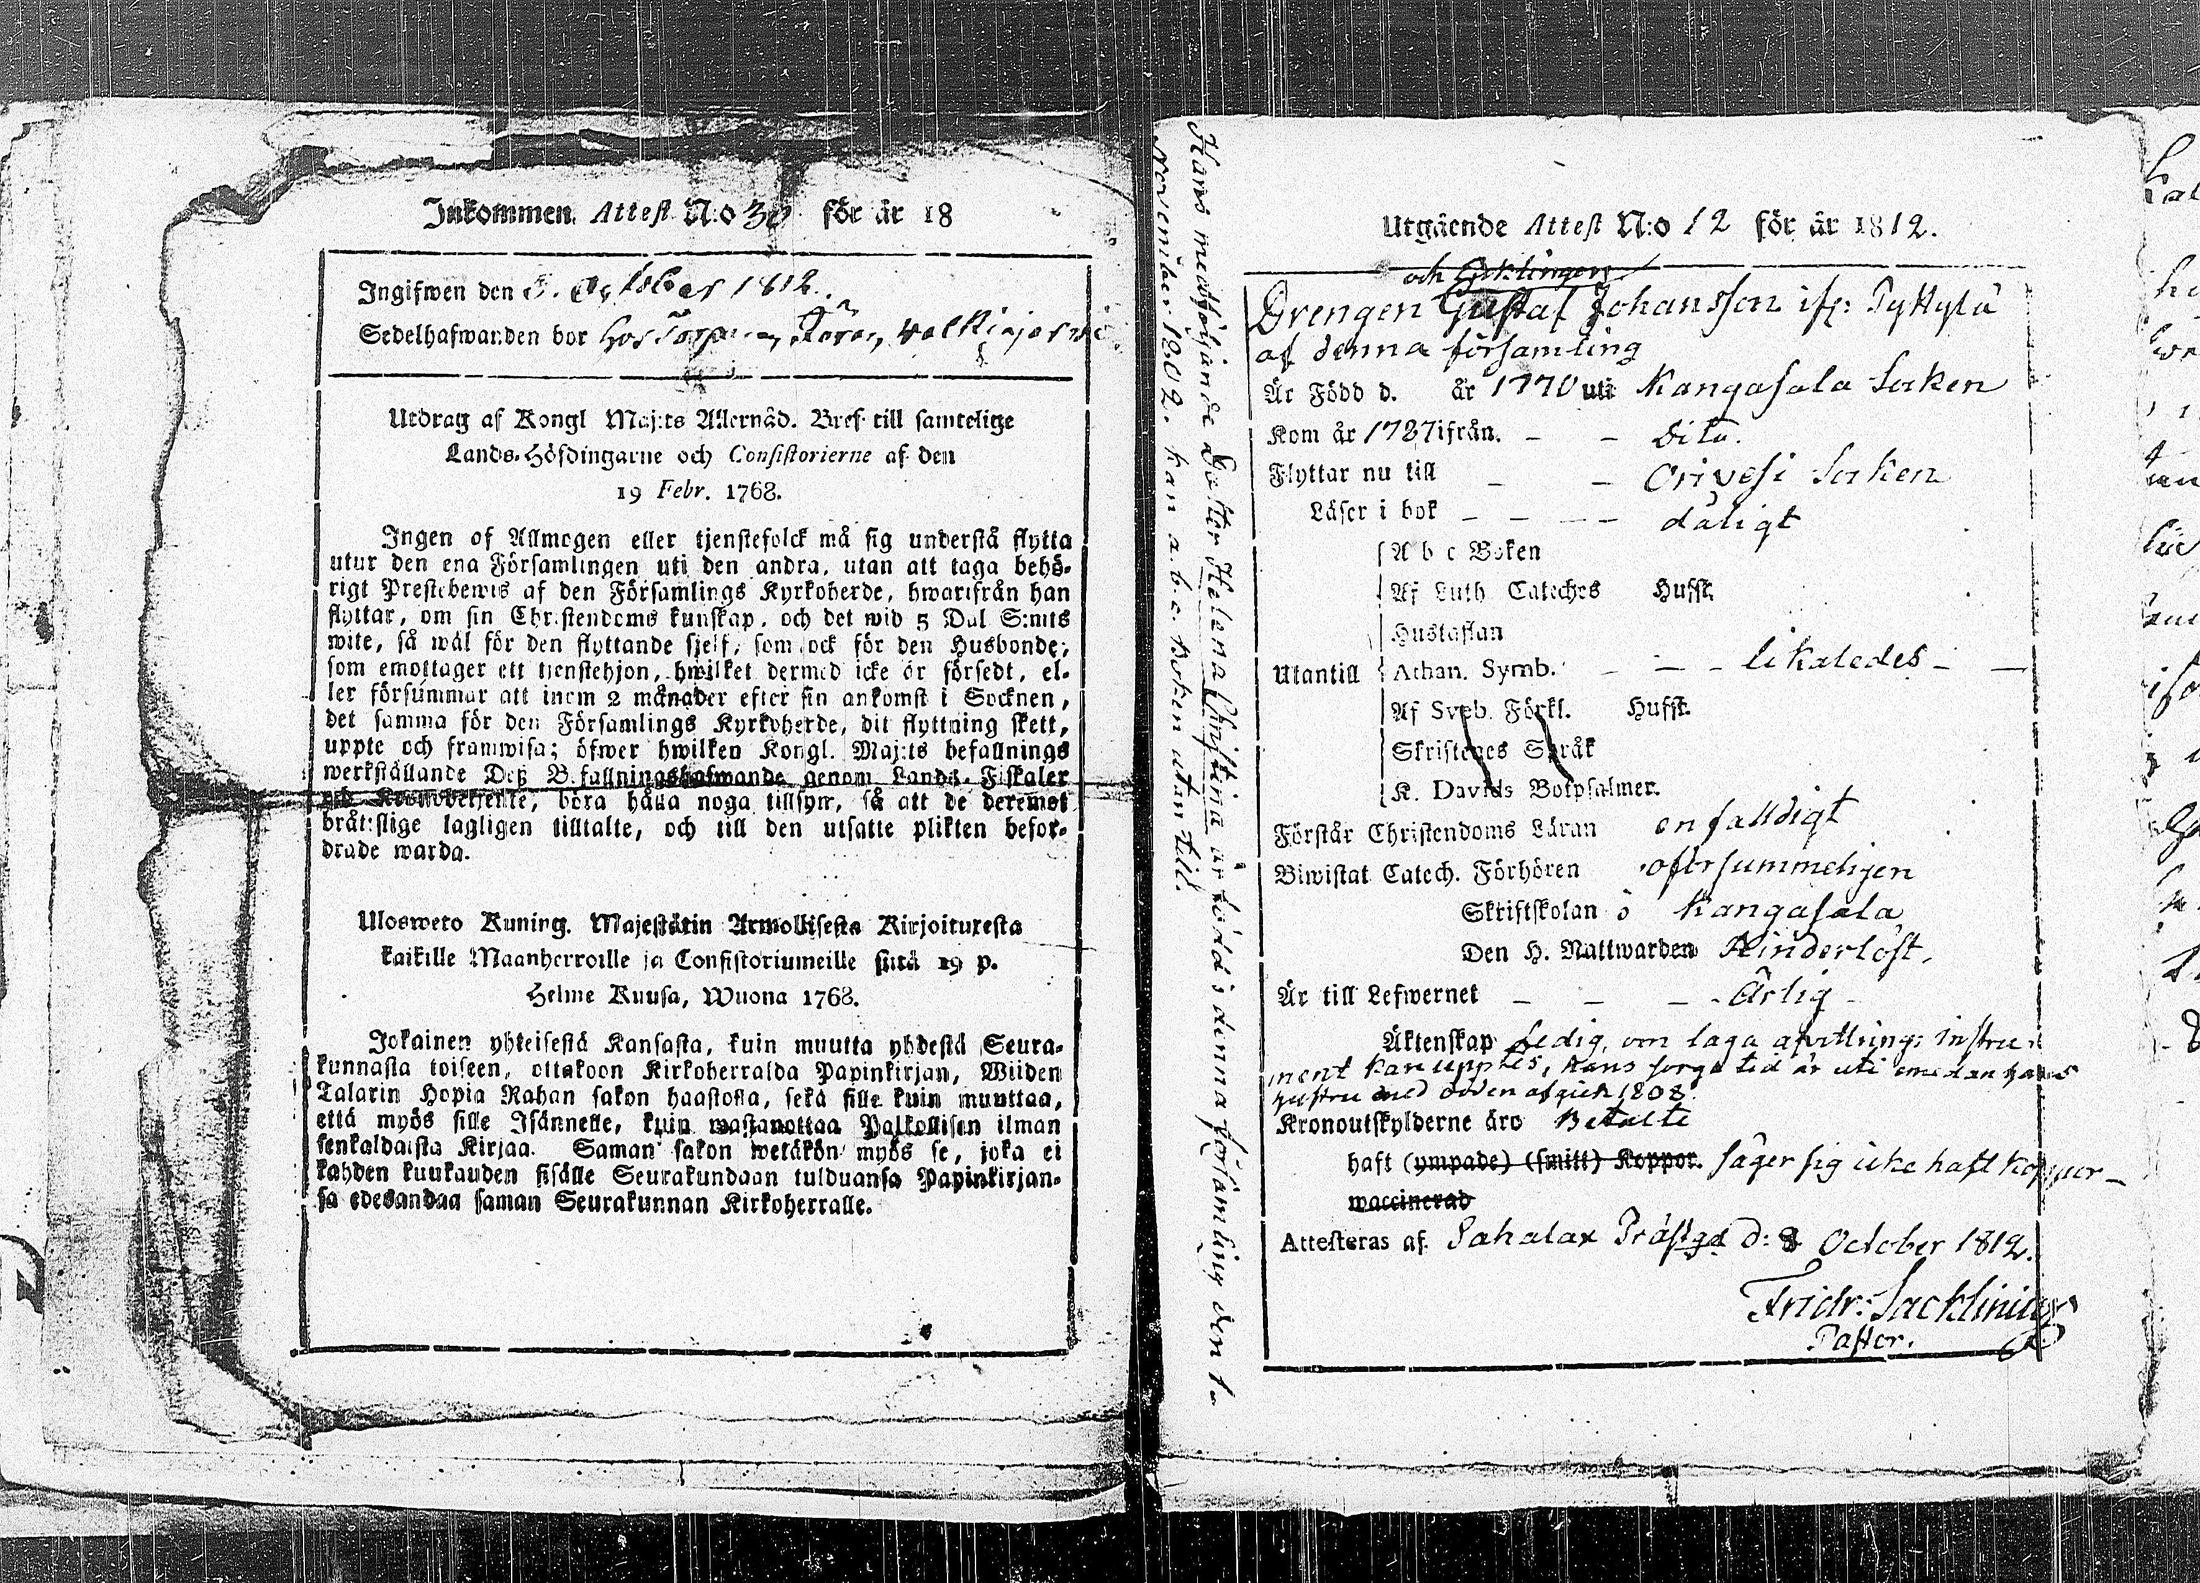 Inkommen. Attest N:o 30 för år 18
Ingifwen den October 1812.
Sedelhafwanden bor hos Walkiajerwi
Utdrag af Kongl Maj:ts Allernåd. Bref till samtelige
Lands-Höfdingarne och Consistorierne af den
19 Febr. 1768.
Ingen of Allmogen eller tjenstefolck må sig understå flytta
utur den ena Församlingen uti den andra, utan att taga behö-
rigt Prestebewis af den Församlings Kyrkoherde, hwarifrån han
flyttar, om sin Christendoms kunskap, och det wid 5 Dal S:mts
wite, så wäl för den flyttande sjelf, som ock för den Husbonde,
som emottager ett tjenstehjon, hwilket dermed icke är försedt, el-
ler försummar att inom 2 månader efter sin ankomst i Socknen,
det samma för den Församlings Kyrkoherde, dit flyttning skett,
uppte och framwisa; öfwer hwilken Kongl. Maj:ts befallnings
werkställande Deß Befallningshafwande genom Lands-Fiskaler
och Kronobetjente, böra hålla noga tillsyn, så att de deremot
bråttslige lagligen tilltalte, och till den utsatte plikten befor-
drade warda.
Ulosweto Kuning. Majestätin Armollisesta Kirjoituxesta
kaikille Maanherroille ja Consistoriumeille siitä 19 p.
Helme Kuusa, Wuona 1768.
Jokainen yhteisestä Kansasta, kuin muutta yhdestä Seura-
kunnasta toiseen, ottakoon Kirkoherralda Papinkirjan, Wiiden
Talarin Hopia Rahan sakon haastolla, sekä sille kuin muuttaa,
että myös sille Isännelle, kuin wastanottaa Palkollisen ilman
senkaldaista Kirjaa. Saman sakon wetäkön myös se, joka ei
kahden kuukauden sisälle Seurakundaan tulduansa Papinkirjan-
sa edesandaa saman Seurakunnan Kirkoherralle.
Hans medföljande Dotter Helena Christina är född i denna församling den 1a
November 1802. kan a.b.c. boken utan till.
Utgående Attest N:o 12 för år 1812.
och
Drengen Gustaf Johansson ifr: Pyttylä
af denna församling
Är Född d. år 1770 uti Kangasala Socken
Kom år 1787 ifrån. - - Dito.
Flyttar nu till - - Orivesi Socken
Läser i bok - - - - dåligt
A b c Boken
Af Luth Cateches Hufst.
Hustaflan
Utantill Athan. Symb. - - - likaledes - -
Af Sveb. Förkl. Hufst.
Skriftenes Språk
K. Davids Botpsalmer.
Förstår Christendoms Läran enfalldigt
Biwistat Catech. Förhören oförsummeligen
Skriftskolan i Kangasala
Den H. Nattwarden Hinderlöst.
Är till Lefwernet - - - Ärlig -
Äktenskap Ledig, om laga afvittrings instru-
ment kan upptes, hans sorge tid är uti emedan hans
hustru med döden afgick 1808.
Kronoutskylderne äro Betalte
haft (ympade) (smitt) Koppor. säger sig icke haft koppor -
waccinerad
Attesteras af. Sahalax Prästgd d: 8 October 1812.
Fridr: Jacklinius
Pastor.